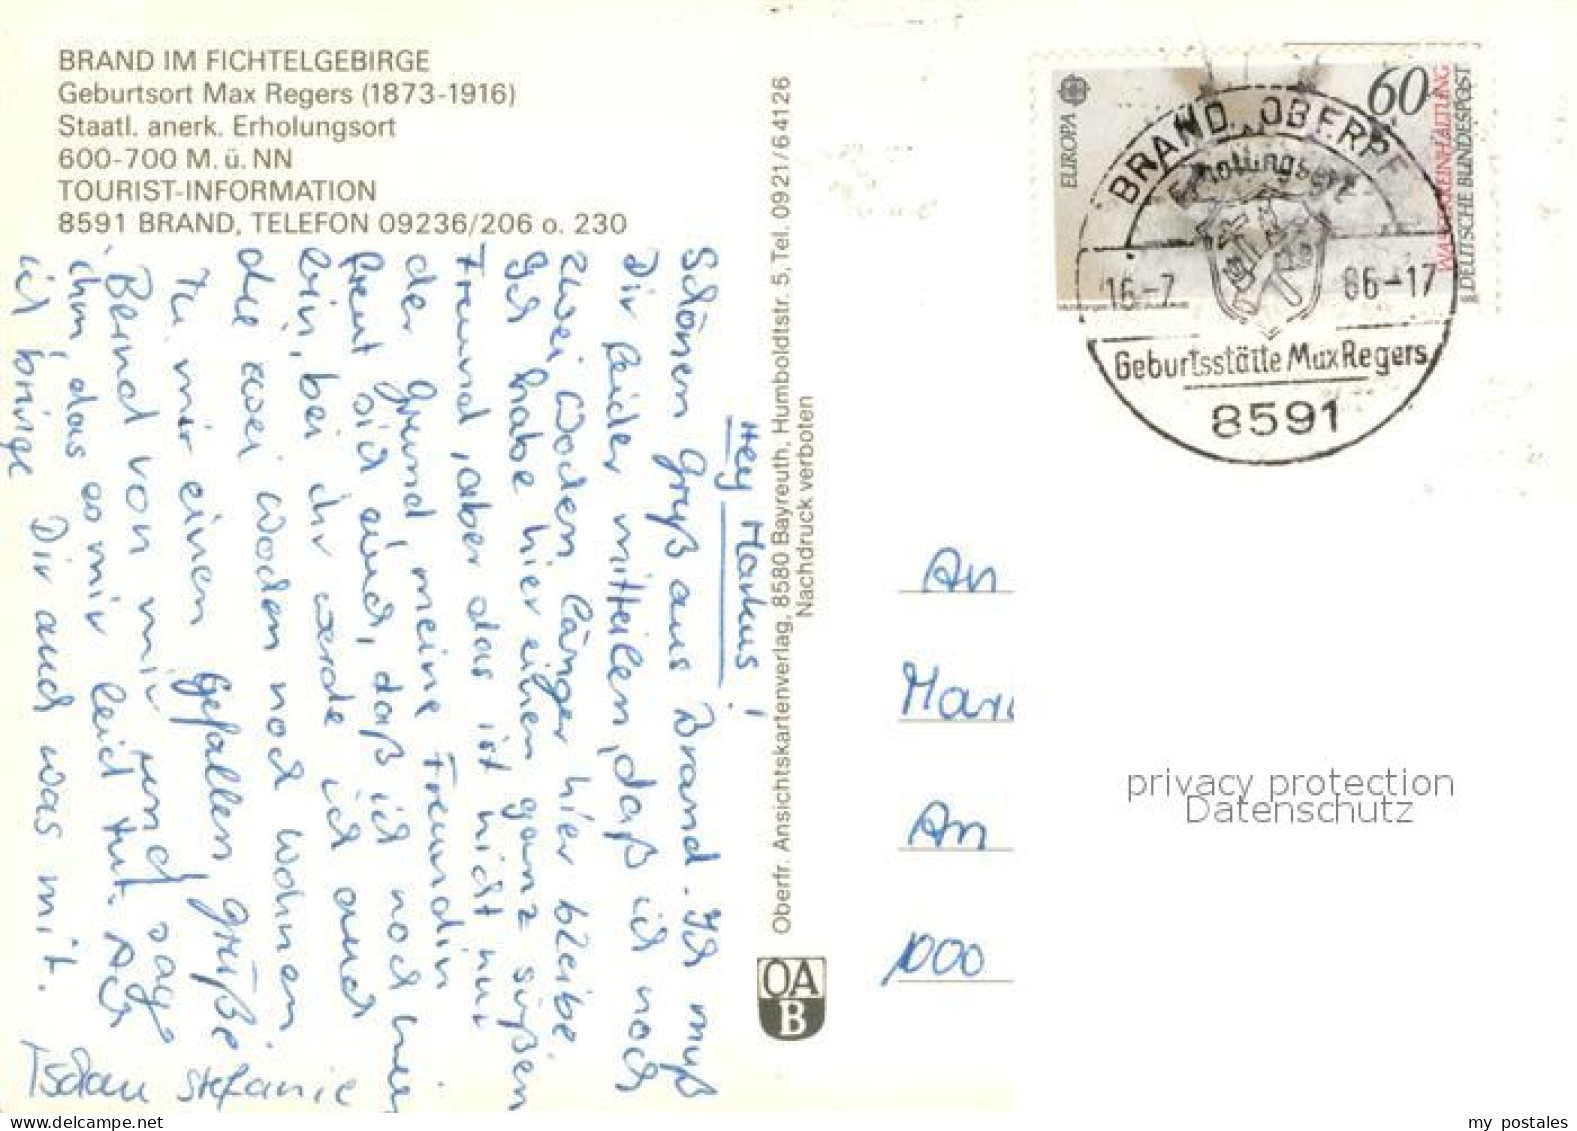 BRAND IM FICHTELGEBIRGE
Geburtsort Max Regers (1873-1916)
Staatl. anerk. Erholungsort
600-700 M. ü. NN
TOURIST-INFORMATION
8591 BRAND, TELEFON 09236/206 o. 230
Hey Markus!
Schönen Gruß aus Brand. Ich muß
Dir leider mitteilen, daß ich noch
zwei Wochen länger hier bleibe.
Ich habe hier einen ganz süßen
Freund, aber das ist nicht nur
der Grund, meine Freundin
freut sich auch, daß ich noch hier
bin, bei ihr werde ich auch
die zwei Wochen noch wohnen.
Tu mir einen Gefallen, grüße
Bernd von mir und sag
ihm, das es mir leid tut. Ach
ich bringe Dir auch was mit.
Tschau Stefanie
Oberfr. Ansichtskartenverlag, 8580 Bayreuth, Humboldtstr. 5, Tel. 0921/64126
Nachdruck verboten
OA
B
EUROPA
60
WASSERREINHALTUNG
DEUTSCHE BUNDESPOST
BRAND, OBERPF
Erholungsort
16.-7 86-17
Geburtsstätte Max Regers
8591
An
Mar
An
1000
privacy protection
Datenschutz
www.delcampe.net
my postales